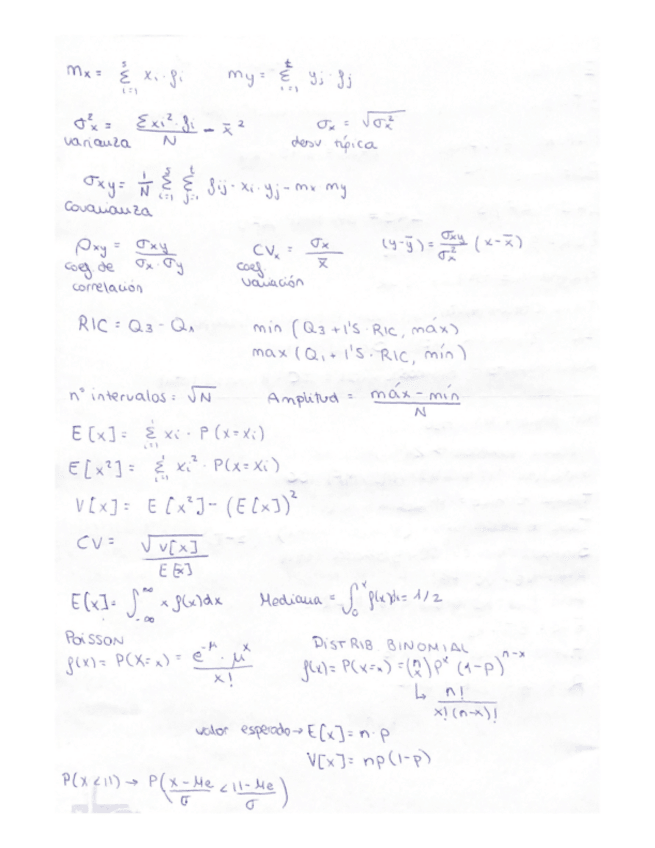 mx = s Σ i=1 xi · fi    my = t Σ i=1 yj · fj
σ²x = Σxi² · fi / N − x̄²    σx = √σx²
varianza    desv típica
σxy = 1/N s Σ i=1 t Σ j=1 fij · xi · yj − mx · my
covarianza
ρxy = σxy / σx · σy    CVx = σx / x̄    (y−ȳ) = σxy / σx² (x−x̄)
coef. de correlación    coef. variación
RIC = Q3 − Q1    min (Q3 + 1'5 · RIC, máx)
max (Q1 + 1'5 · RIC, mín)
nº intervalos = √N    Amplitud = máx − mín / N
E[x] = Σ i=1 xi · P(x=xi)
E[x²] = Σ i=1 xi² · P(x=xi)
V[x] = E[x²] − (E[x])²
CV = √V[x] / E[x]
E[x] = ∫ −∞ ∞ x f(x)dx    Mediana = ∫ 0 x f(x)dx = 1/2
Poisson    DISTRIB. BINOMIAL
f(x) = P(X=x) = e^−μ · μ^x / x!    f(x) = P(X=x) = (n x) p^x (1−p)^n−x
↳ n! / x!(n−x)!
valor esperado → E[x] = n · p
V[x] = np(1−p)
P(x < 11) → P(x − Me / σ < 11 − Me / σ)